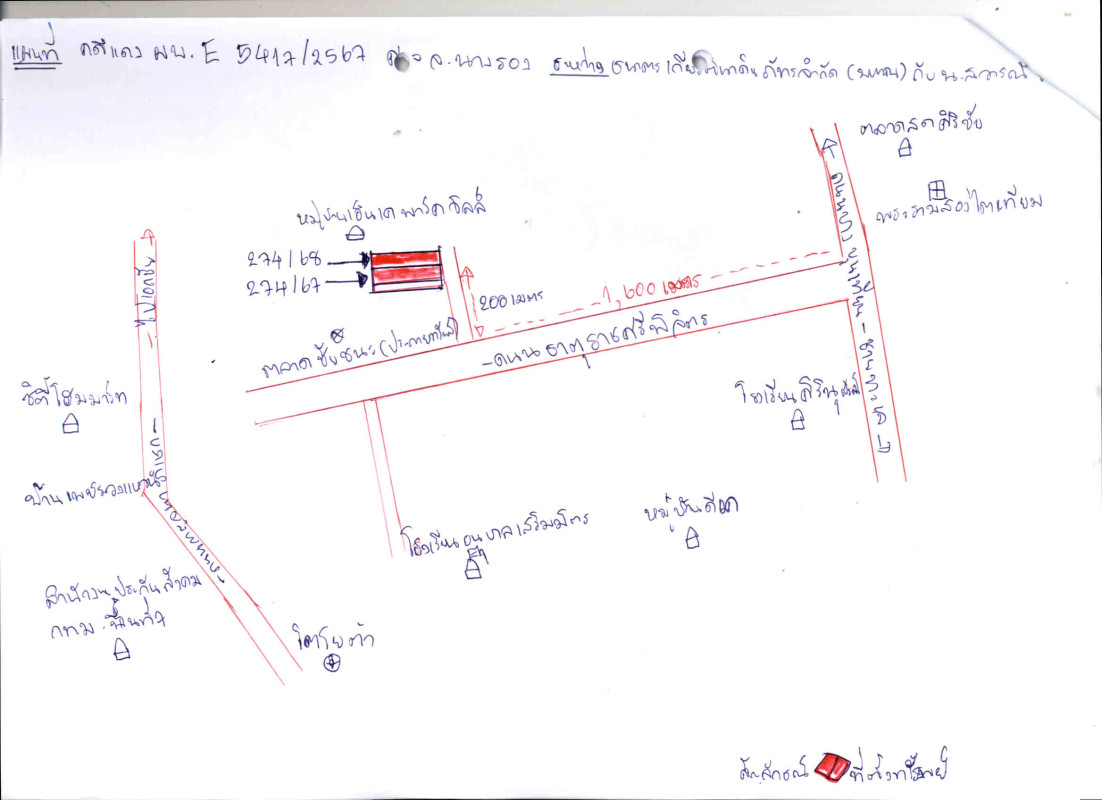 แผนที่ คดีแดง ผบ. E 5417/2567 ศาล จ.นางรอง ระหว่าง ธนาคารเกียรตินาคินภัทรจำกัด (มหาชน) กับ น.ส.วารุณี
ตลาดสดศิริชัย
พระรามสองไดเทียม
หมู่บ้านเอ็นเค พาร์ควิลล์
274/68
274/67
200 เมตร
1,600 เมตร
ไปเอกชัย
ตลาดชัยชนะ
-ถนนธาตุ
ซิตี้โฮมมาร์ท
โรงเรียนศิริ
บ้านเพชร
หมู่บ้านดีเค
โรงเรียนอนุบาลเสริมมิตร
สำนักงานประกันสังคม
กทม. พื้นที่7
โตโยต้า
สัญลักษณ์ ที่ตั้งทรัพย์